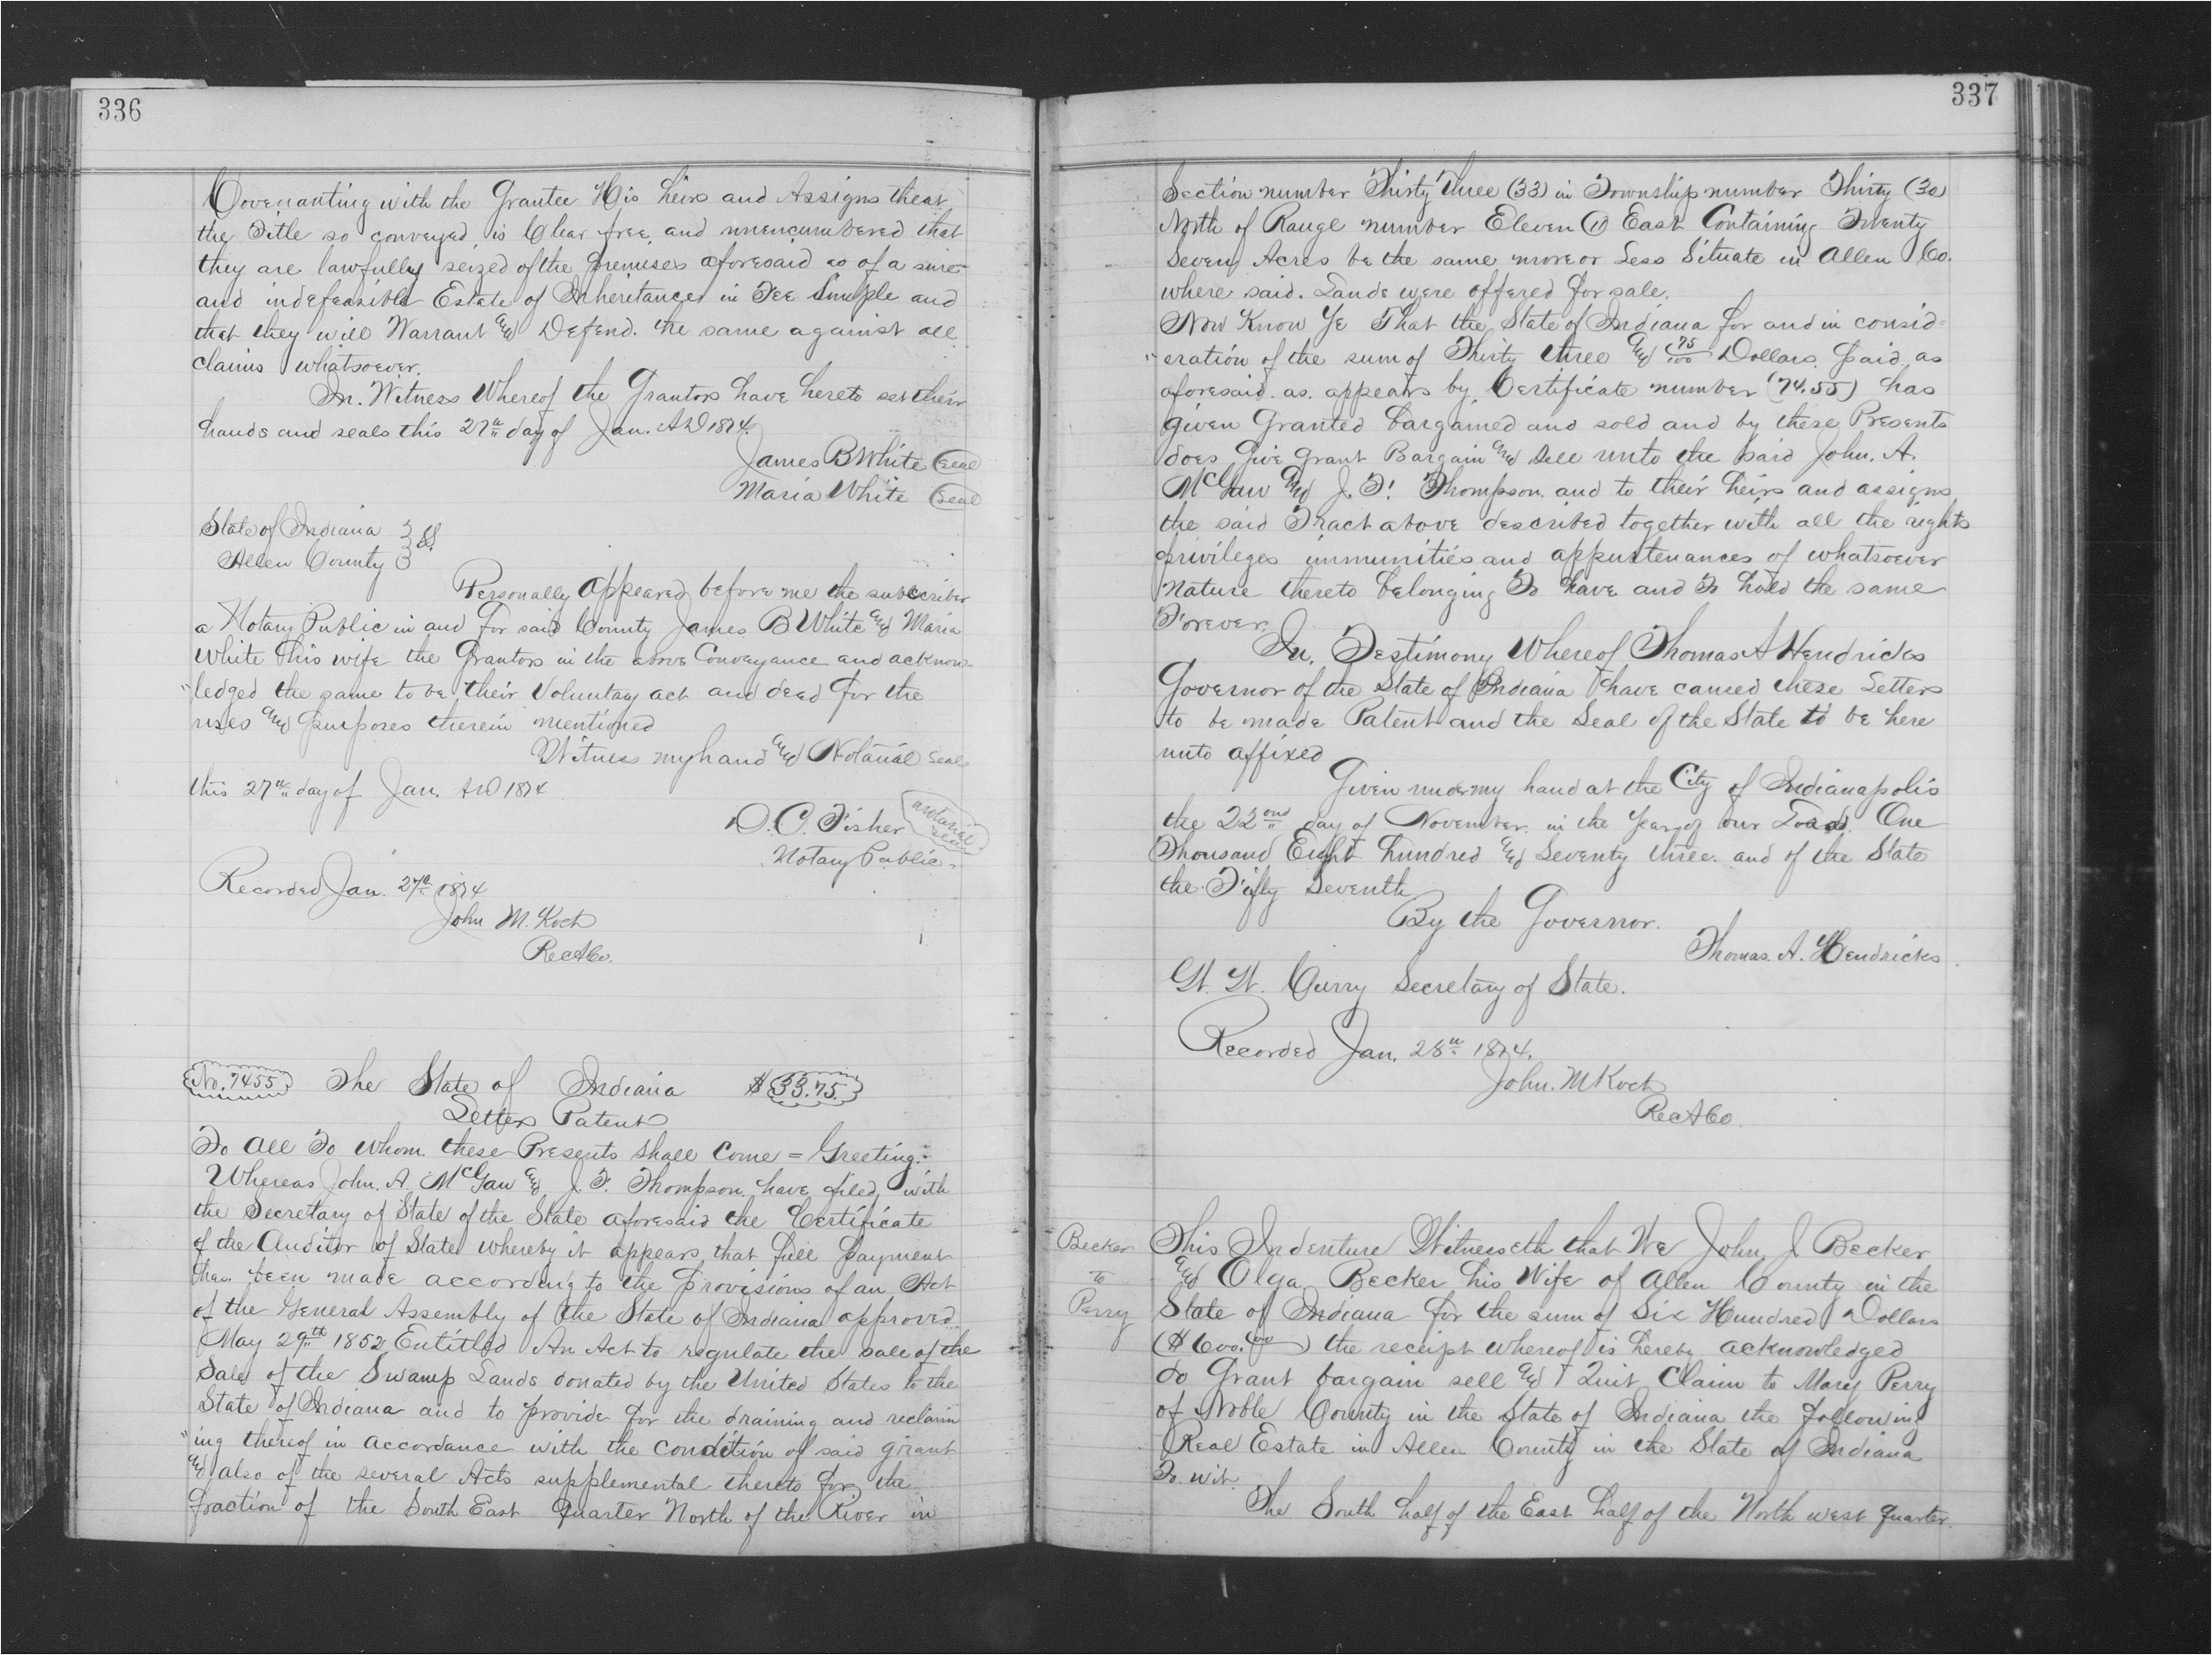 336
Covenanting with the Grantee His heirs and Assigns that
the Title so conveyed, is Clear free, and unencumbered that
they are lawfully seized of the premises aforesaid as of a sure
and indefeasible Estate of Inheritance in Fee Simple and
that they will Warrant and Defend. the same against all
claims whatsoever.
In. Witness Whereof the Grantors have hereto set their
hands and seals this 27th day of Jan. AD 1874.
James B White (Seal)
Maria White (Seal)
State of Indiana } SS.
Allen County }
Personally Appeared before me the subscriber
a Notary Public in and For said County James B White and Maria
White his wife the Grantors in the above Conveyance and acknow-
"ledged the same to be their Voluntary act and deed for the
uses and purposes therein mentioned
Witness my hand and Notarial Seal
this 27th day of Jan. AD 1874
D. C. Fisher (Notarial Seal)
Notary Public
Recorded Jan. 27th 1874
John M. Koch
Rec A Co.
No. 7455 The State of Indiana $33.75
Letters Patent
To All To Whom these Presents Shall Come = Greeting:
Whereas John. A. McGaw and J. F. Thompson have filed with
the Secretary of State of the State aforesaid the Certificate
of the Auditor of State whereby it appears that full payment
has been made according to the provisions of an Act
of the General Assembly of the State of Indiana approved
May 29th 1852 Entitled An Act to regulate the sale of the
Sale of the Swamp Lands donated by the United States to the
State of Indiana and to provide for the draining and reclaim
"ing thereof in accordance with the condition of said grant
and also of the several Acts supplemental thereto for the
fraction of the South East Quarter North of the River in
337
Section number Thirty Three (33) in Township number Thirty (30)
North of Range number Eleven (11) East Containing Twenty
Seven Acres be the same more or Less Situate in Allen Co.
where said. Lands were offered for sale.
Now Know Ye That the State of Indiana for and in consid-
"eration of the sum of Thirty three and 75/100 Dollars paid as
aforesaid. as. appears by Certificate number (74.55) has
given Granted bargained and sold and by these Presents
does Give Grant Bargain and Sell unto the said John. A.
McGaw and J. F. Thompson. and to their heirs and assigns
the said Tract above described together with all the rights
privileges immunities and appurtenances of whatsoever
Nature thereto belonging To have and To hold the same
Forever.
In. Testimony Whereof Thomas A Hendricks
Governor of the State of Indiana have caused these Letters
to be made Patent and the Seal of the State to be here
unto affixed
Given under my hand at the City of Indianapolis
the 22ond day of November. in the Year of our Lord. One
Thousand Eight hundred and Seventy three. and of the State
the Fifty Seventh
By the Governor.
Thomas. A. Hendricks.
W. W. Curry Secretary of State.
Recorded Jan. 28th 1874.
John. M Koch
Rec A Co.
Becker
to
Perry
This Indenture Witnesseth that We John J Becker
and Olga Becker his Wife of Allen County in the
State of Indiana for the sum of Six Hundred Dollars
($600.00) the receipt whereof is hereby acknowledged
do Grant bargain sell and Quit Claim to Mary Perry
of Noble County in the State of Indiana the following
Real Estate in Allen County in the State of Indiana
To. wit.
The South half of the East half of the North west quarter.